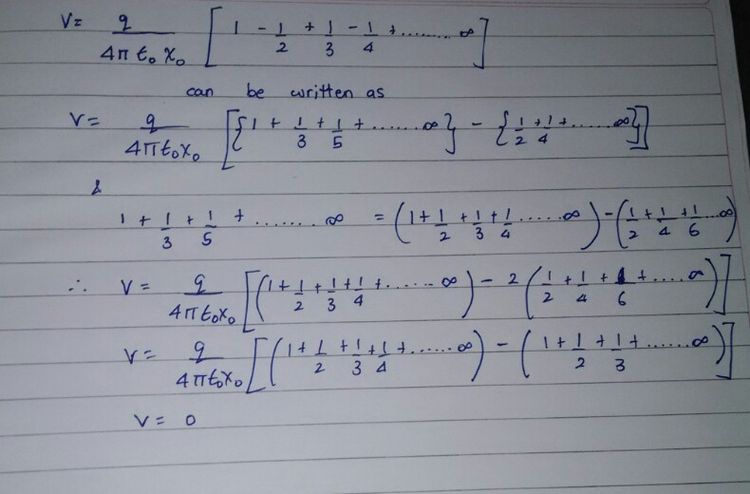 V = q/4πε₀x₀ [1 - 1/2 + 1/3 - 1/4 + ........ ∞]
can be written as
V = q/4πε₀x₀ [{1 + 1/3 + 1/5 + ....... ∞} - {1/2 + 1/4 + ...... ∞}]
&
1 + 1/3 + 1/5 + ........ ∞ = (1 + 1/2 + 1/3 + 1/4 ...... ∞) - (1/2 + 1/4 + 1/6 ... ∞)
∴ V = q/4πε₀x₀ [(1 + 1/2 + 1/3 + 1/4 + ....... ∞) - 2 (1/2 + 1/4 + 1/6 + ..... ∞)]
V = q/4πε₀x₀ [(1 + 1/2 + 1/3 + 1/4 + ...... ∞) - (1 + 1/2 + 1/3 + ...... ∞)]
V = 0